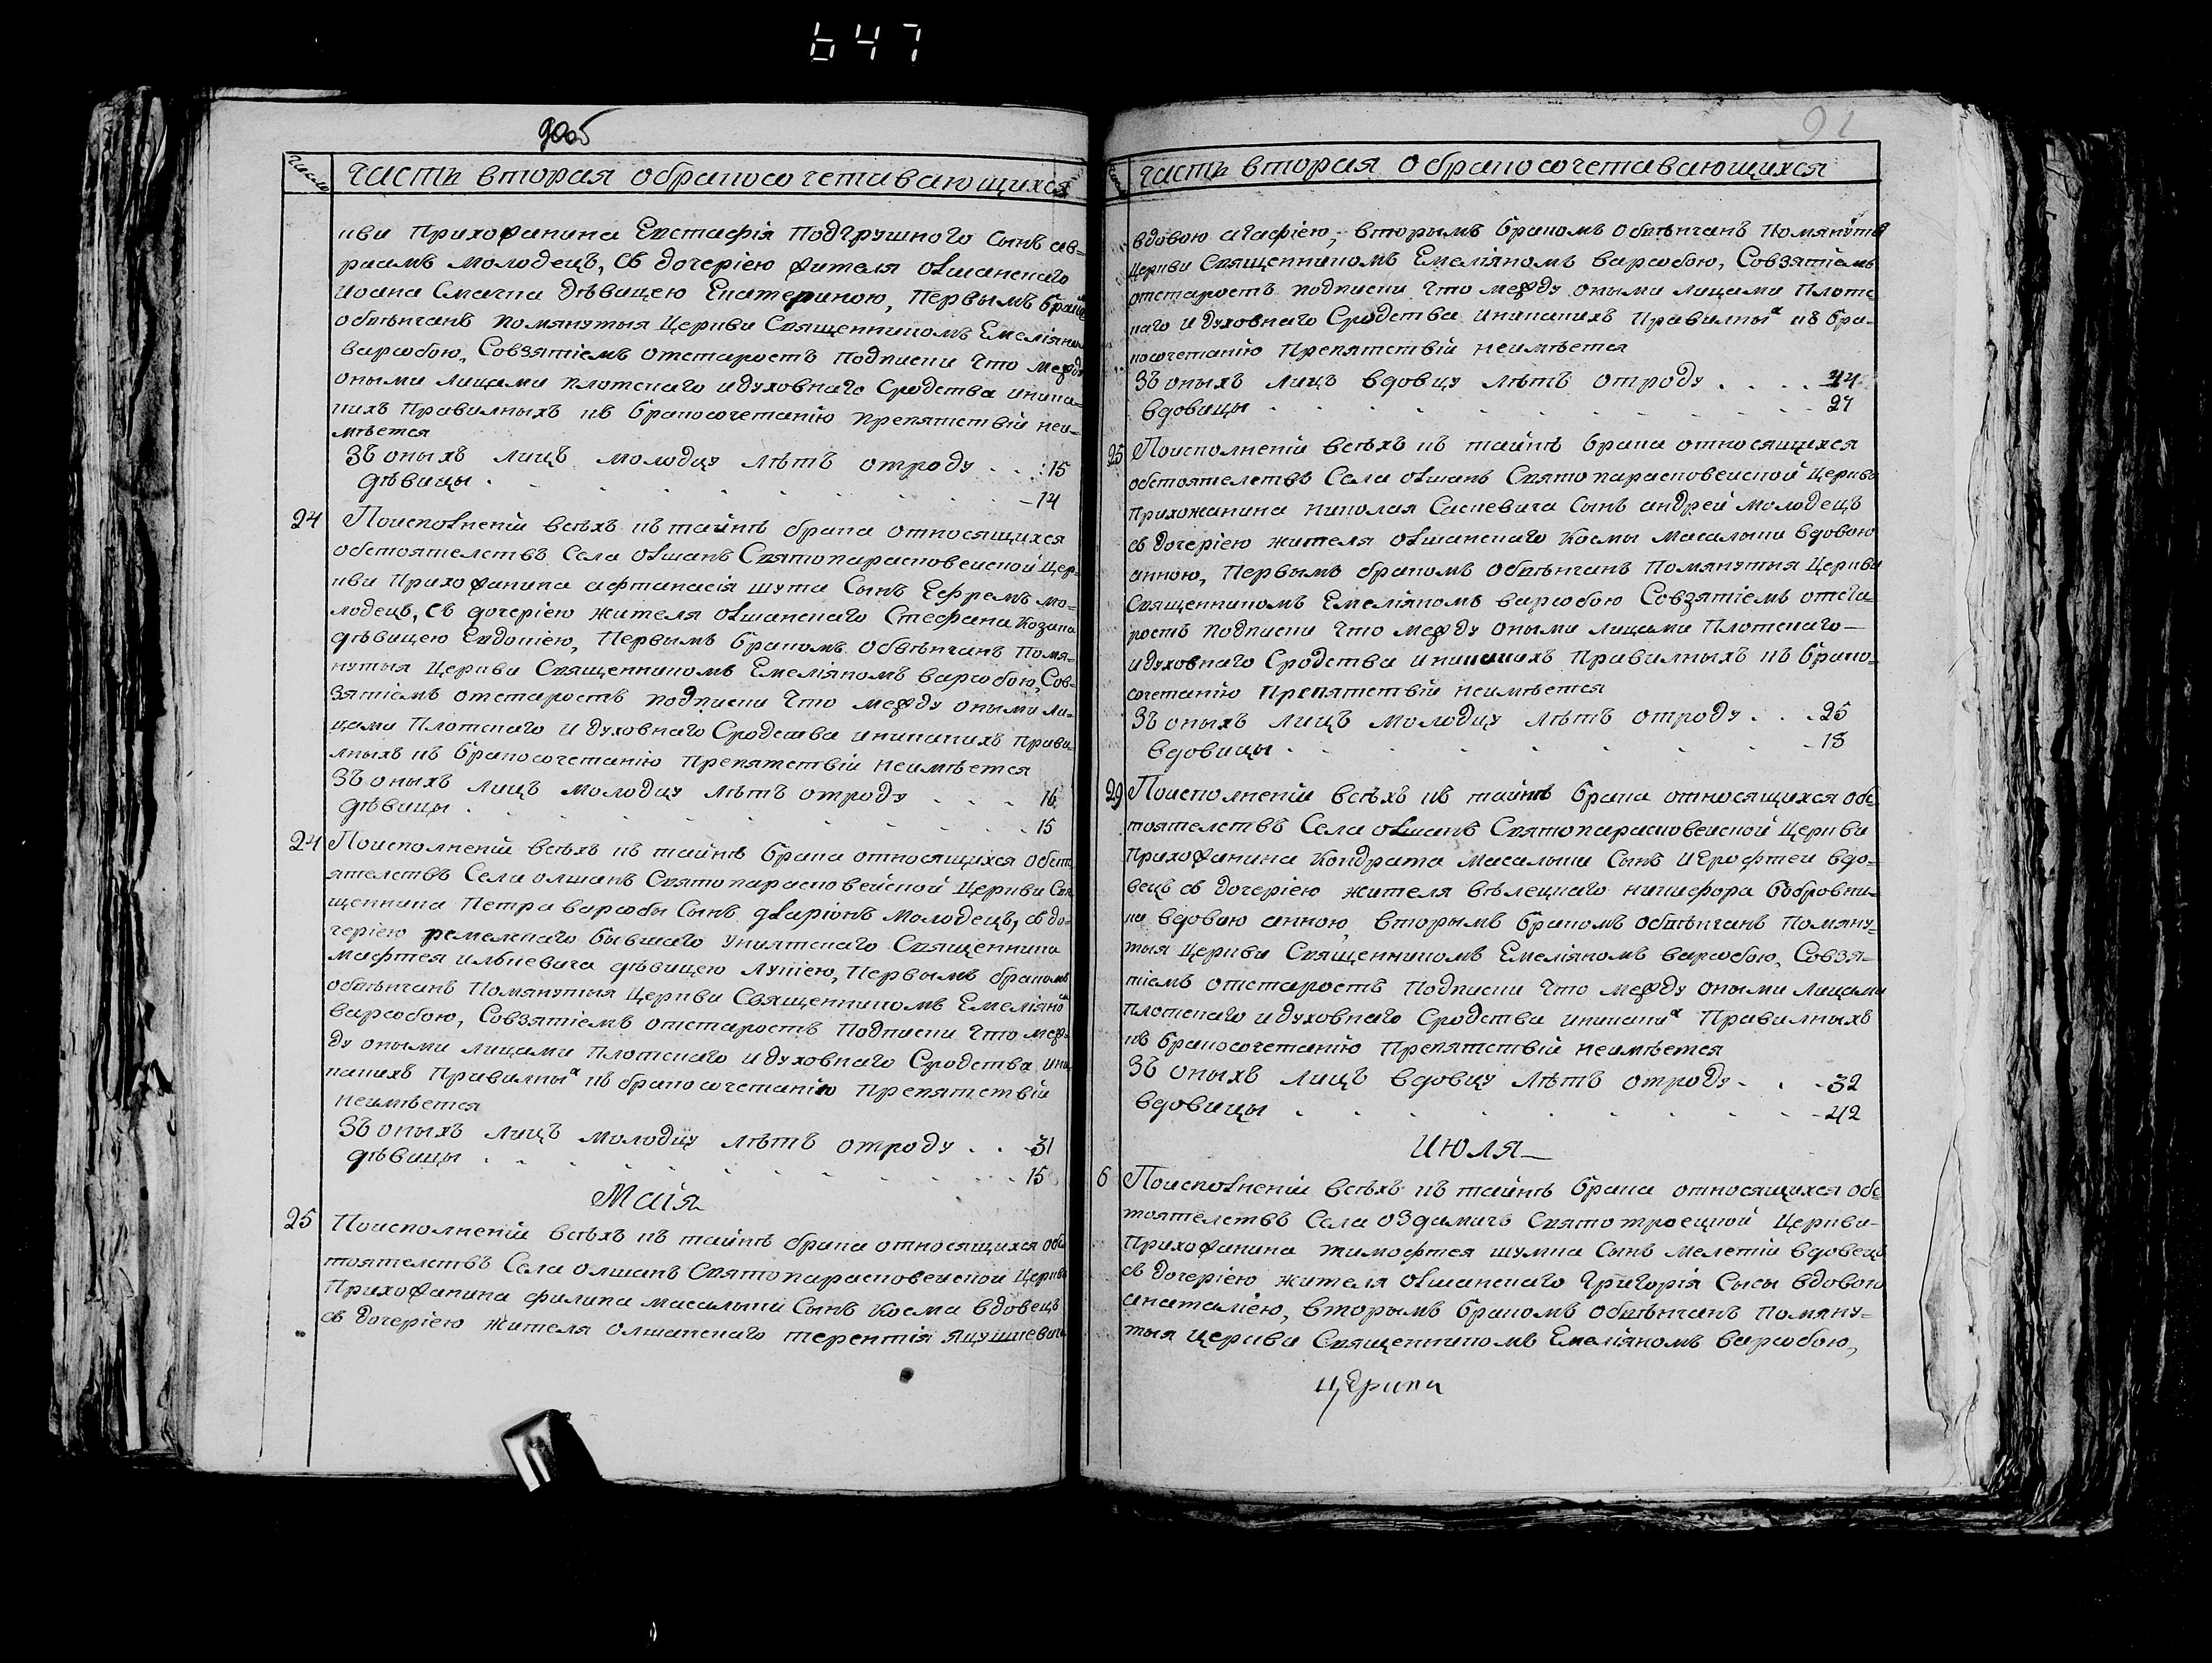 647
90об
число
часть вторая обракосочетавающихся
кви Прихожанина Евстафія Подгрушного Сынъ ав=
раамъ молодецъ, съ дочеріею жителя олшанскаго
Иоана Смачка дѣвицею Екатериною, Первымъ бракомъ
обвѣнчанъ Помянутыя Церкви Священникомъ Емеліяномъ
варѡбою, Совзятіемъ отстаростъ Подписки что между
оными лицами плотскаго идуховнаго Сродства иника=
кихъ Правилныхъ къ бракосочетанію Препятствій неи=
мѣется
Зъ оныхъ лицъ молодцу лѣтъ отроду . . . 15
дѣвицы . . . 14
24 Поисполненіи всѣхъ къ тайнѣ брака относящихся
обстоятелствъ Села олшанъ Святопарасковеиской Цер=
кви Прихожанина афтанасія шута Сынъ Ефремъ мо=
лодецъ, съ дочеріею жителя олшанскаго Стефана Козака
дѣвицею Евдокіею, Первымъ бракомъ обвѣнчанъ Помя=
нутыя Церкви Священникомъ Емеліяномъ варѡбою, Сов=
зятіемъ отстаростъ подписки что между оными ли=
цами Плотскаго и духовнаго Сродства иникакихъ прави
лныхъ къ бракосочетанію Препятствій неимѣется
Зъ оныхъ лицъ молодцу лѣтъ отроду . . . 16
дѣвицы . . . 15
24 Поисполненіи всѣхъ къ тайнѣ брака относящихся обсто
ятелствъ Села олшанъ Святопарасковейской Церкви Свя
щенника Петра варѡбы Сынъ иларіонъ молодецъ, съ до=
черіею ремелскаго бывшаго униятскаго Священника
мафтея илкневича дѣвицею Лукіею, Первымъ бракомъ
обвѣнчанъ Помянутыя Церкви Священникомъ Емеліяномъ
варѡбою, Совзятіемъ отстаростъ Подписки что меж=
ду оными лицами плотскаго и духовнаго Сродства ини
какихъ Правилныхъ къ бракосочетанію Препятствій
неимѣется
Зъ оныхъ лицъ молодцу лѣтъ отроду . . 31
дѣвицы . . . 15
Маія
25 Поисполненіи всѣхъ къ тайнѣ брака относящихся обс
тоятелствъ Села олшанъ Святопарасковеиской Церкви
Прихожанина филипа масалыки Сынъ Косма вдовецъ
съ дочеріею жителя олшанскаго терентія Яцушкевича
91
число
часть вторая обракосочетавающихся
вдовою агафіею, вторымъ бракомъ обвѣнчанъ Помянутыя
Церкви Священникомъ Емеліяномъ варѡбою, Совзятіемъ
отстаростъ подписки что между оными лицами Плотс
каго и духовнаго Сродства иникакихъ Правилныхъ къ бра=
косочетанію Препятствій неимѣется
Зъ оныхъ лицъ вдовцу лѣтъ отроду . . . 44
вдовицы . . . 27
25 Поисполненіи всѣхъ къ тайнѣ брака относящихся
обстоятелствъ Села олшанъ Святопарасковеиской Церкви
прихожанина николая Саскевича Сынъ андрей молодецъ
съ дочеріею жителя олшанскаго Космы масалыки вдовою
анною, Первымъ бракомъ обвѣнчанъ Помянутыя Церкви
Священникомъ Емеліяномъ варѡбою Совзятіемъ отста=
ростъ подписки что между оными лицами Плотскаго
идуховнаго Сродства иникакихъ Правилныхъ къ брако=
сочетанію Препятствій неимѣется
Зъ оныхъ лицъ молодцу лѣтъ отроду . . . 25
вдовицы . . . 18
29 Поисполненіи всѣхъ къ тайнѣ брака относящихся обс
тоятелствъ Села олшанъ Святопарасковеиской Церкви
прихожанина Кондрата масалыки Сынъ иерофтеи вдо=
вецъ съ дочеріею жителя вѣлецкаго никифора бобровни=
ка вдовою анною, вторымъ бракомъ обвѣнчанъ Помяну=
тыя Церкви Священникомъ Емеліяномъ варѡбою, Совзя=
тіемъ отстаростъ Подписки что между оными лицами
плотскаго идуховнаго Сродства иникакихъ Правилныхъ
къ бракосочетанію Препятствій неимѣется
Зъ оныхъ лицъ вдовцу лѣтъ отроду . . . 32
вдовицы . . . 42
июля
6 Поисполненіи всѣхъ къ тайнѣ брака относящихся обс
тоятелствъ Села оздамичъ Святотроецкой Церкви
Прихожанина тимофтея шумка Сынъ мелетіи вдовецъ
съ дочеріею жителя олшанскаго Григорія Сысы вдовою
анаталіею, вторымъ бракомъ обвѣнчанъ Помяну=
тыя церкви Священникомъ Емеліяномъ варѡбою,